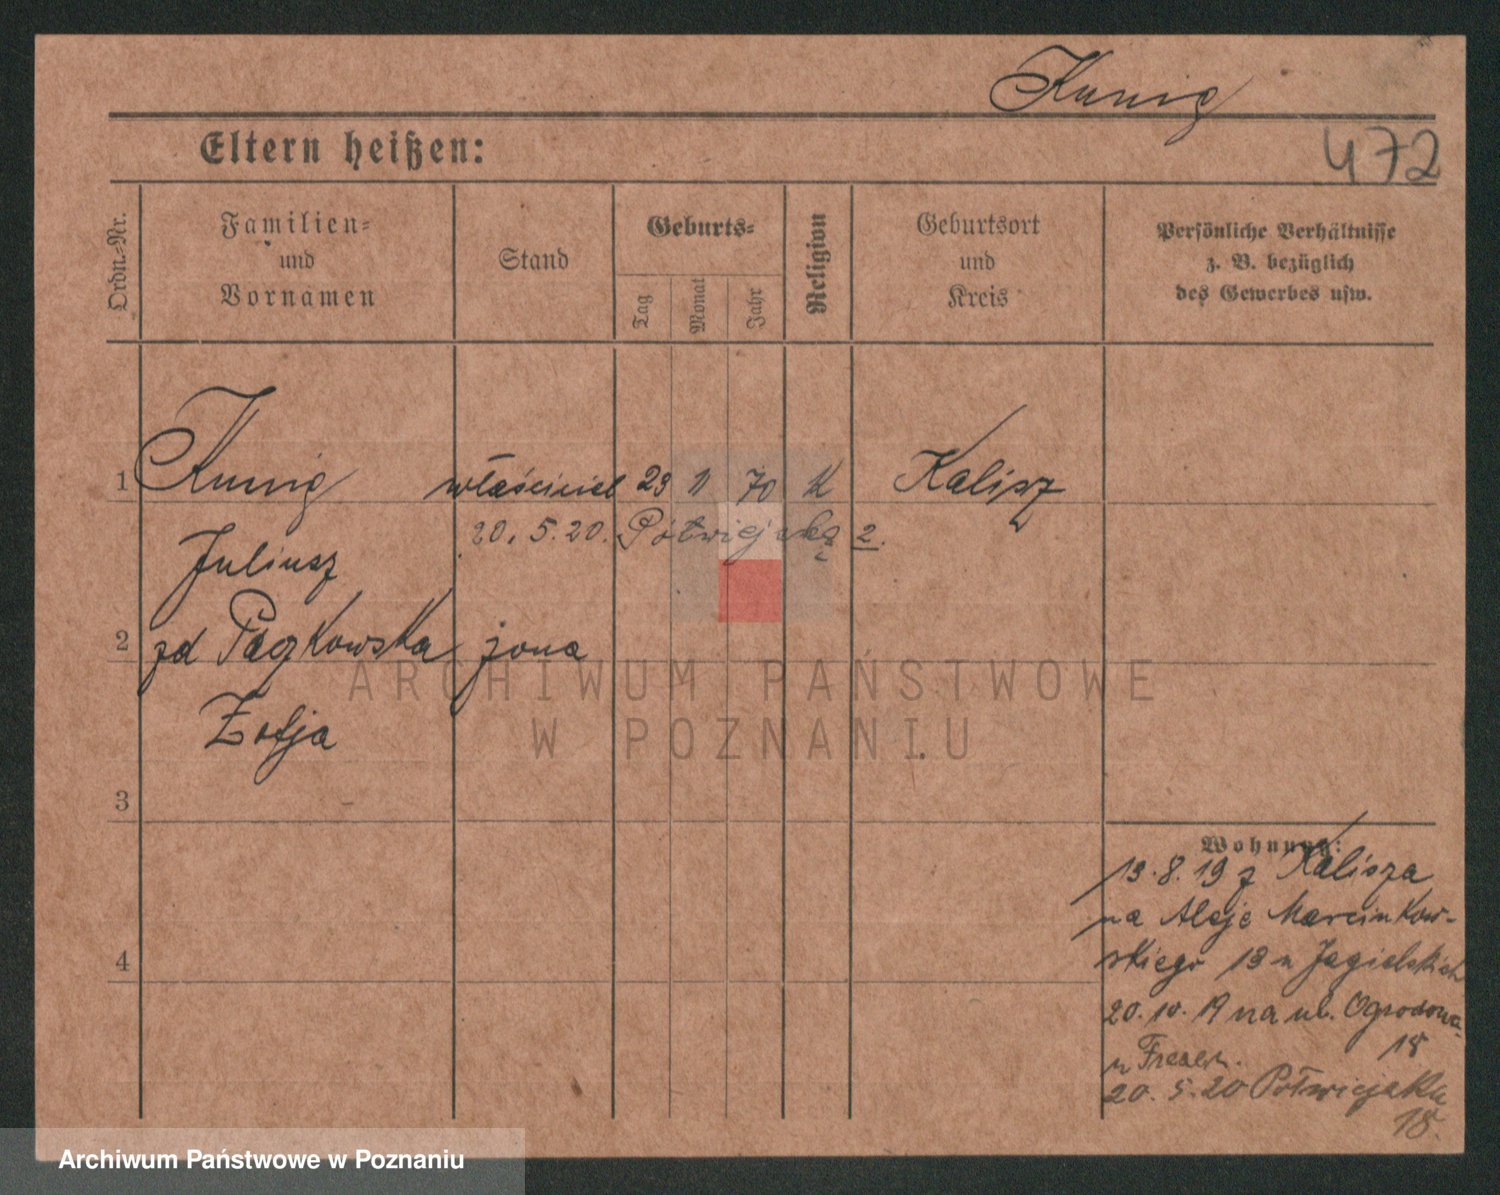 Kunig
472
Eltern heißen:
Ordn.-Nr.
Familien-
und
Vornamen
Stand
Geburts-
Tag
Monat
Jahr
Religion
Geburtsort
und
Kreis
Persönliche Verhältnisse
z. B. bezüglich
des Gewerbes usw.
1 Kunig właściciel 23 11 70 K Kalisz
20. 5. 20. Półwiejską 2.
Juliusz
2 zd Paczkowska żona
Zofja
3
4
Wohnung:
13. 8. 19 z Kalisza
na Aleje Marcinkow-
skiego 13 u Jagielskich
20. 10. 19 na ul. Ogrodowa
18
u
20. 5. 20 Półwiejska
18.
ARCHIWUM PAŃSTWOWE
W POZNANIU
Archiwum Państwowe w Poznaniu